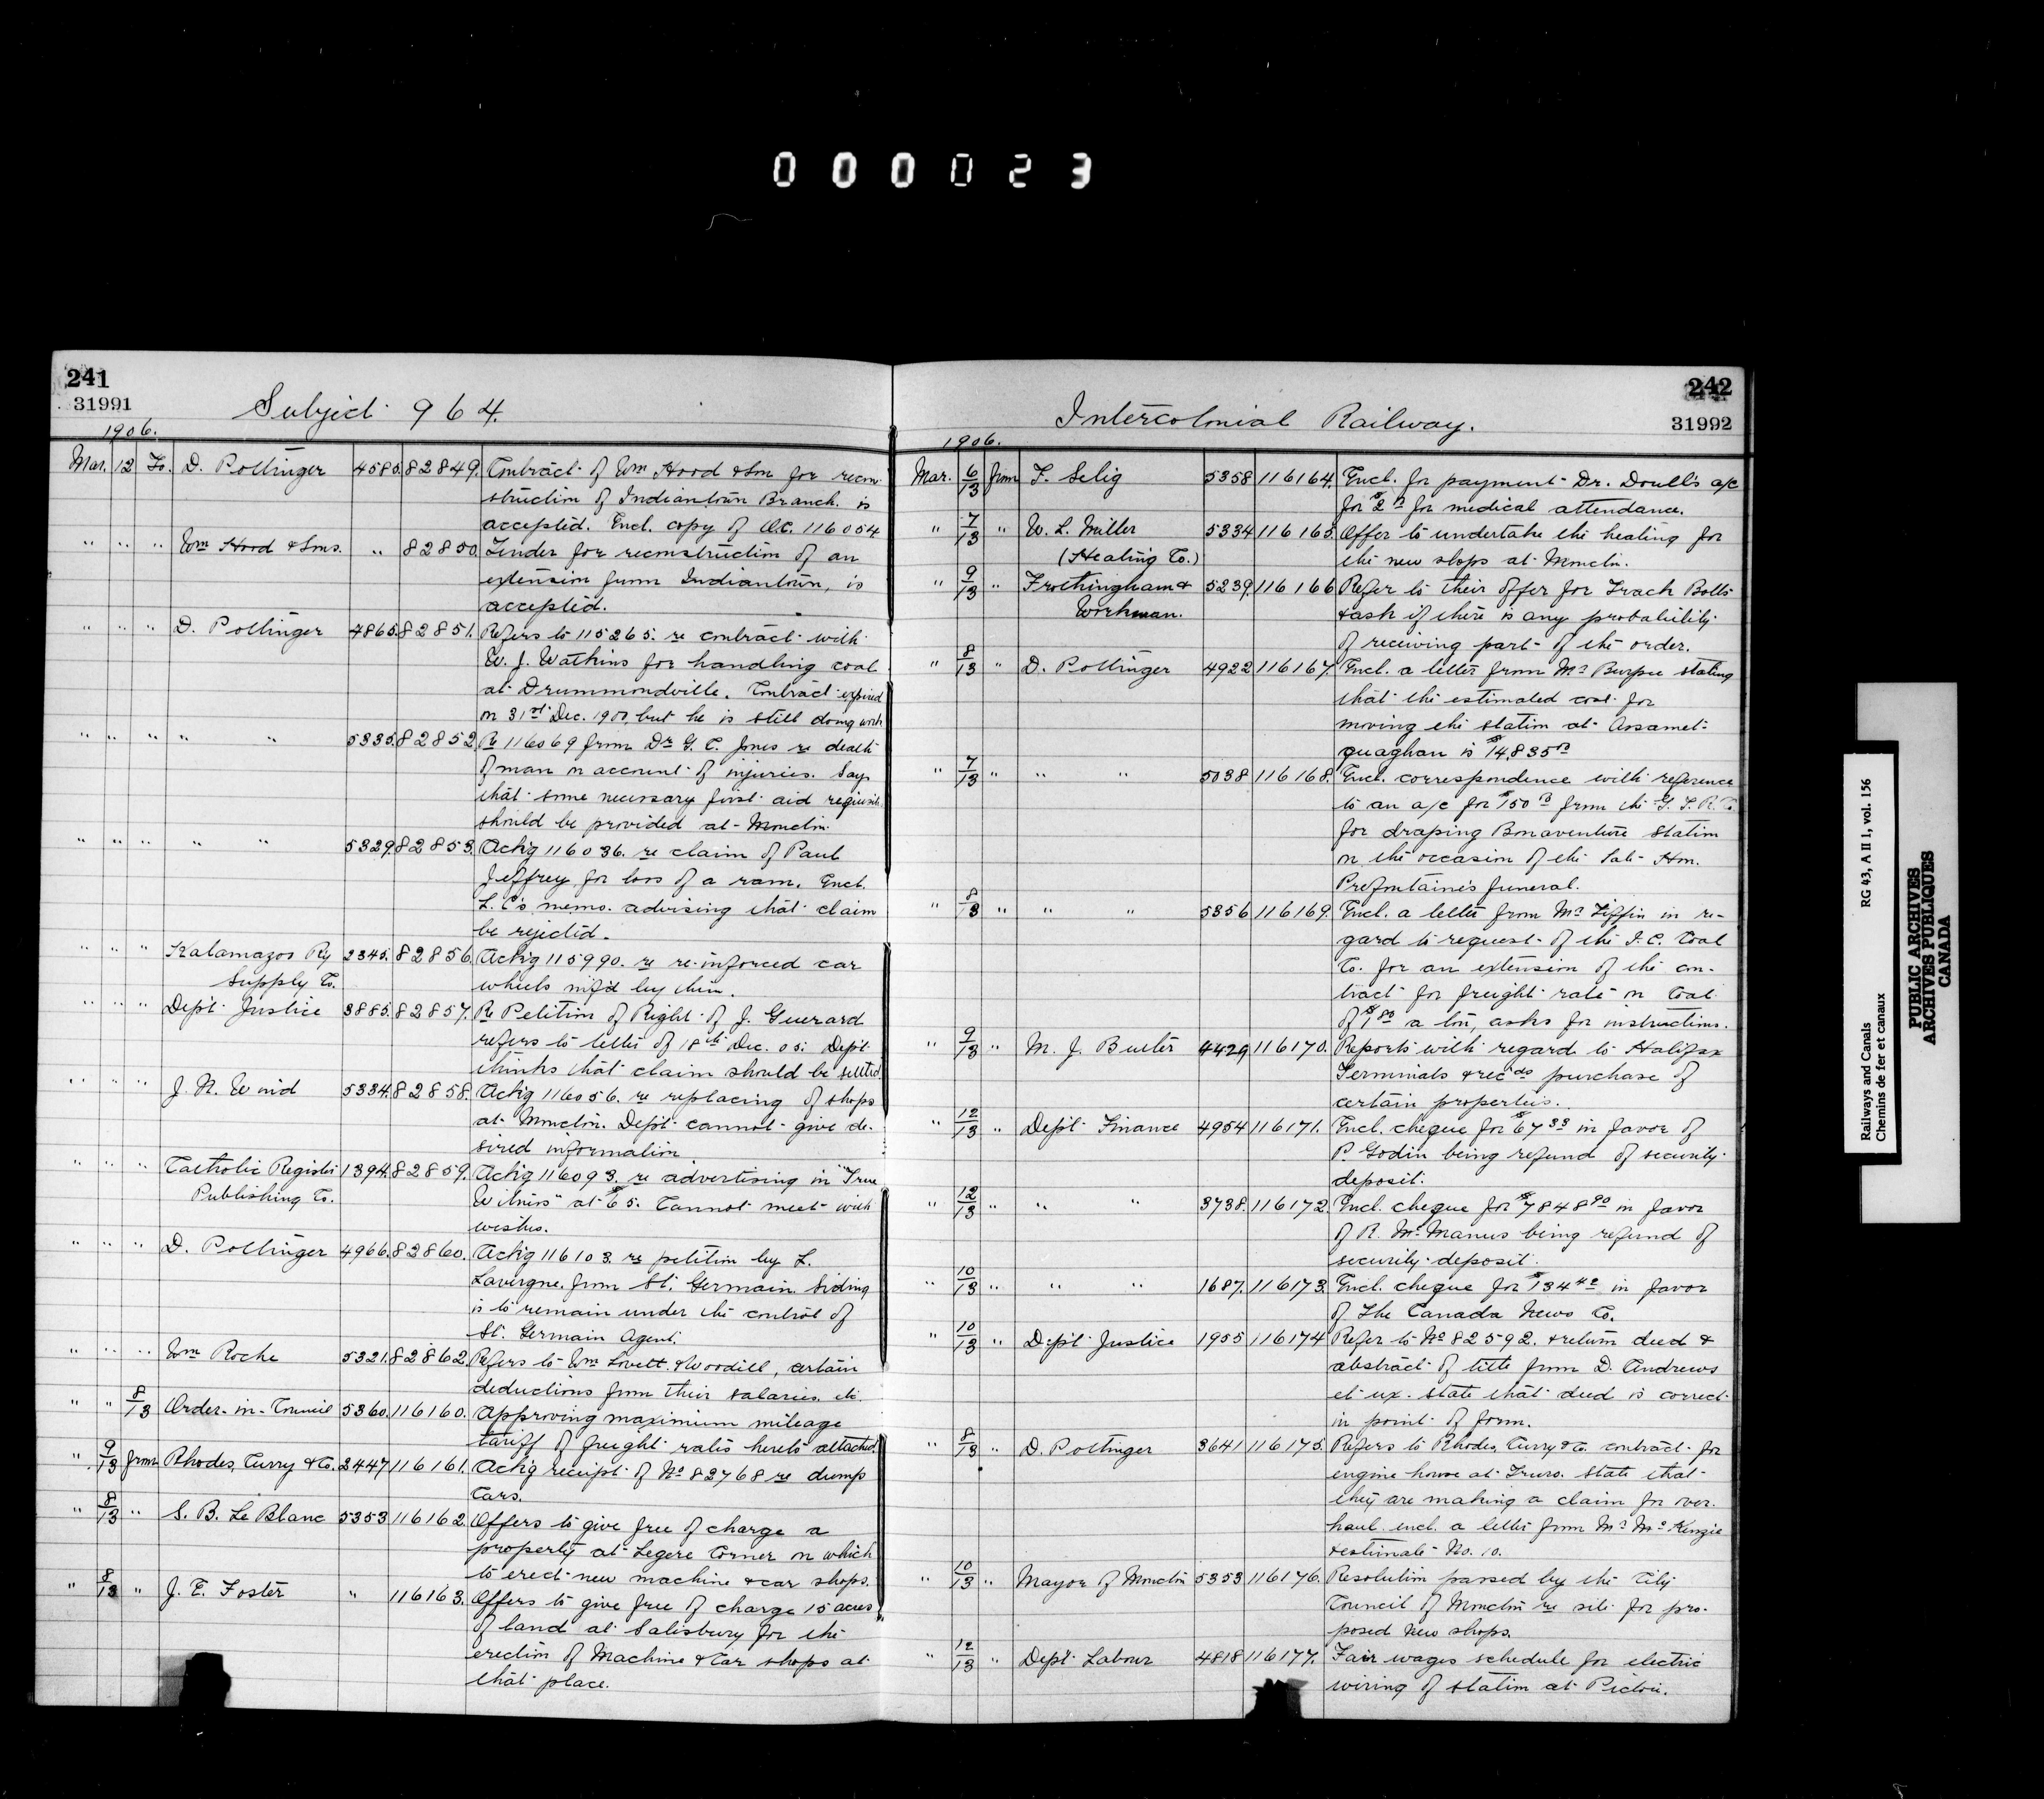 000023
241
31991
Subject 964.
1906.
Mar. 12 To. D. Pottinger 4585. 82849. Contract of Wm Hood & Son for recon-
struction of Indiantown Branch is
accepted. Encl. copy of O.C. 116054
" " " Wm Hood & Sons. " 82850. Tender for reconstruction of an
extension from Indiantown, is
accepted.
" " " D. Pottinger 4865. 82851. Refers to 115265. re contract with
W. J. Watkins for handling coal
at Drummondville. Contract expired
on 31st Dec. 1900, but he is still doing work
" " " " " 5335. 82852. Re 116069 from Dr G. C. Jones re death
of man on account of injuries. Says
that some necessary first aid requisite
should be provided at Moncton.
" " " " " 5329. 82853. Ack'g 116036. re claim of Paul
Jeffrey for loss of a ram. Encl.
L. C's memo. advising that claim
be rejected.
" " " Kalamazoo Ry 2345. 82856. Ack'g 115990. re re-inforced car
Supply Co. wheels m'f'd by them.
" " " Dep't Justice 3885. 82857. Re Petition of Right of J. Guerard
refers to letter of 18th Dec. 05. Dep't
thinks that claim should be settled.
" " " J. N. W 5334. 82858. Ack'g 116056. re replacing of shops
at Moncton. Dep't cannot give de-
sired information.
" " " Catholic Register 1394. 82859. Ack'g 116093. re advertising in "True
Publishing Co. Witness" at $65. Cannot meet with
wishes.
" " " D. Pottinger 4966. 82860. Ack'g 116103. re petition by L.
Lavergne from St. Germain. Siding
is to remain under the control of
St. Germain Agent.
" " " Wm Roche 5321. 82862. Refers to Wm Lovett & Woodill, certain
deductions from their salaries. etc.
" " 8/13 Order-in-Council 5360. 116160. Approving maximum mileage
tariff of freight rates hereto attached.
" 9/13 from Rhodes, Curry & Co. 2447 116161. Ack'g receipt of No 82768 re dump
Cars.
" 8/13 " S. B. Le Blanc 5353 116162. Offers to give free of charge a
property at Legere Corner on which
to erect new machine & car shops.
" 8/13 " J. E. Foster " 116163. Offers to give free of charge 15 acres
of land at Salisbury for the
erection of Machine & Car shops at
that place.
242
Intercolonial Railway.
31992
1906.
Mar. 6/13 from F. Selig 5358 116164. Encl. for payment Dr. Doull's a/c
for $2 00 for medical attendance.
" 7/13 " W. L. Miller 5334 116165. Offer to undertake the heating for
(Heating Co.) the new shops at Moncton.
" 9/13 " Frothingham & 5239. 116166 Refer to their offer for Track Bolts
Workman. & ask if there is any probability
of receiving part of the order.
" 8/13 " D. Pottinger 4922 116167. Encl. a letter from Mr Burpee stating
that the estimated cost for
moving the station at Assamet-
quaghan is $14,835 00
" 7/13 " " " 5038 116168. Encl. correspondence with reference
to an a/c for $150 00 from the G. T. R. Co.
for draping Bonaventure Station
on the occasion of the late Hon.
Prefontaine's funeral.
" 8/13 " " " 5356 116169. Encl. a letter from Mr Tiffin in re-
gard to request of the I. C. Coal
Co. for an extension of the con-
tract for freight rate on Coal
of $1 80 a ton, asks for instructions.
" 9/13 " M. J. Butler 4429 116170. Reports with regard to Halifax
Terminals & recds purchase of
certain properties.
" 12/13 " Dep't Finance 4954 116171. Encl. cheque for $67 33 in favor of
P. Godin being refund of security
deposit.
" 12/13 " " " 3738. 116172. Encl. cheque for $7848 90 in favor
of R. McManus being refund of
security deposit.
" 10/13 " " " 1687. 116173. Encl. cheque for $134 42 in favor
of The Canada News Co.
" 10/13 " Dep't Justice 1955 116174 Refer to No 82592. & return deed &
abstract of title from D. Andrews
et ux. state that deed is correct
in point of form.
" 8/13 " D. Pottinger 3641 116175. Refers to Rhodes, Curry & Co. contract for
engine house at Truro. State that
they are making a claim for over-
haul. encl. a letter from Mr McKenzie
& estimate No. 10.
" 10/13 " Mayor of Moncton 5353 116176. Resolution passed by the City
Council of Moncton re site for pro-
posed new shops.
" 12/13 " Dep't Labour 4818 116177. Fair wages schedule for electric
wiring of station at Pictou.
Railways and Canals RG 43, A II 1, vol. 156
Chemins de fer et canaux
PUBLIC ARCHIVES
ARCHIVES PUBLIQUES
CANADA